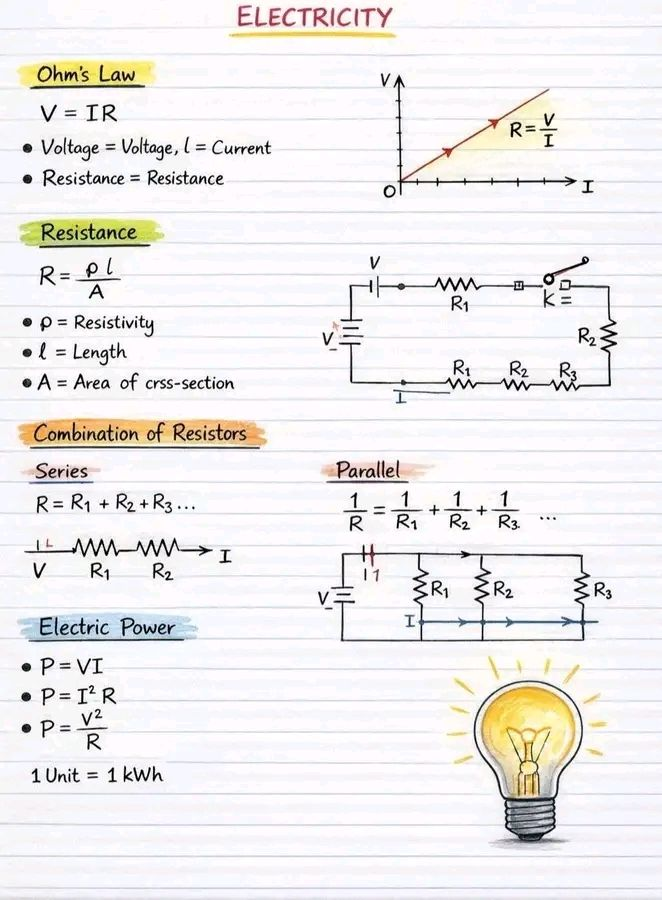 ELECTRICITY
Ohm's Law
V = IR
• Voltage = Voltage, l = Current
• Resistance = Resistance
V
R = V/I
O
I
Resistance
R = ρ l / A
• ρ = Resistivity
• l = Length
• A = Area of crss-section
V
R₁
K =
V
R₂
R₁ R₂ R₃
I
Combination of Resistors
Series
R = R₁ + R₂ + R₃ ...
V R₁ R₂ I
Parallel
1/R = 1/R₁ + 1/R₂ + 1/R₃. ...
V
R₁ R₂ R₃
I
Electric Power
• P = VI
• P = I² R
• P = V²/R
1 Unit = 1 kWh